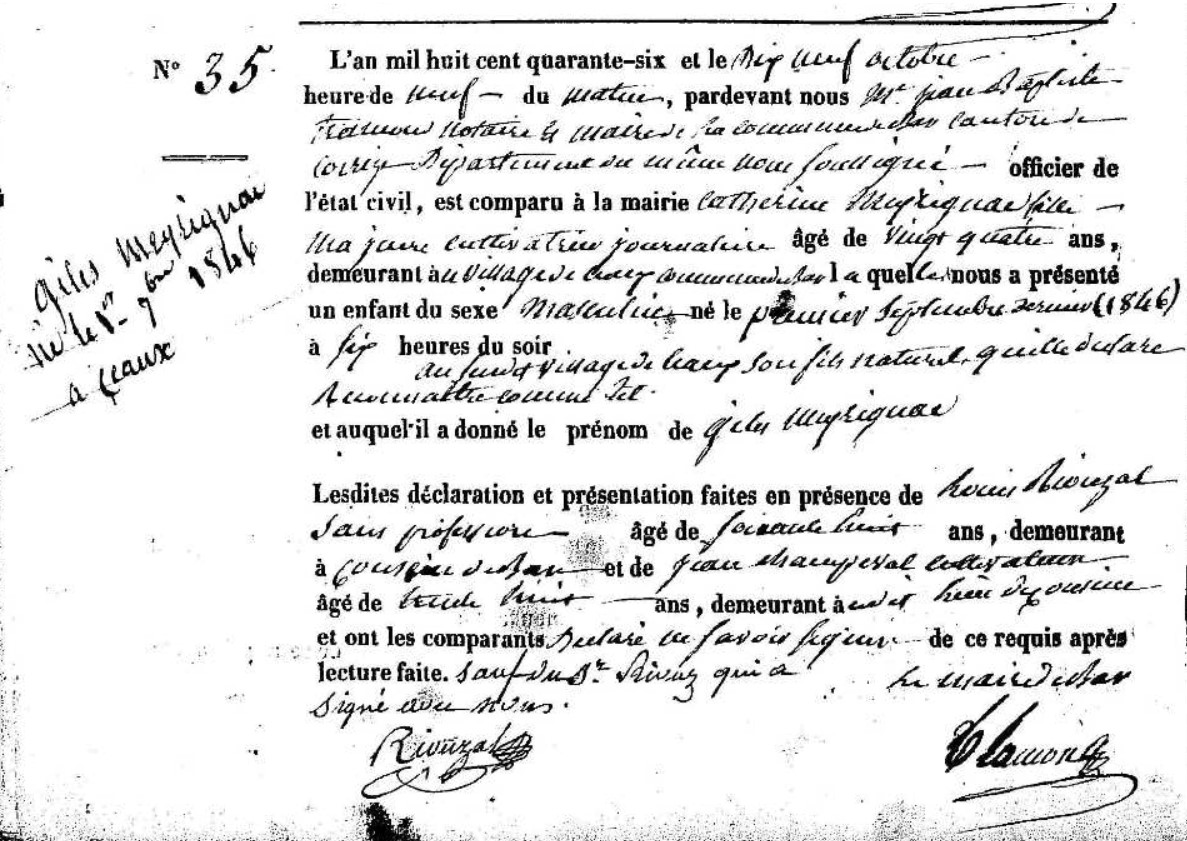 N° 35.
L'an mil huit cent quarante-six et le Dix neuf octobre
heure de neuf du matin, pardevant nous Mr. jean Baptiste
notaire & maire de la commune de Bar canton de
Corrèze Département du même nom soussigné officier de
l'état civil, est comparu à la mairie Catherine Meyrignac fille
majeure cultivatrice journalière âgé de vingt quatre ans,
demeurant à au village de commune de Bar laquelle nous a présenté
un enfant du sexe Masculin né le premier Septembre dernier (1846)
à six heures du soir
au susdit village de son fils naturel, qu'elle déclare
Reconnaitre comme tel.
et auquel il a donné le prénom de giles Meyrignac
giles Meyrignac
né le 1er 7bre 1846
a çeaux
Lesdites déclaration et présentation faites en présence de Louis Riouzal
sans profession âgé de soixante huit ans, demeurant
à de Bar et de jean Champeval cultivateur
âgé de trente huit ans, demeurant à audit lieu de
et ont les comparants Déclaré ne savoir signer de ce requis après
lecture faite. Sauf du Sr. Riouz qui a
signé avec nous.
Le maire de Bar
Riouzal